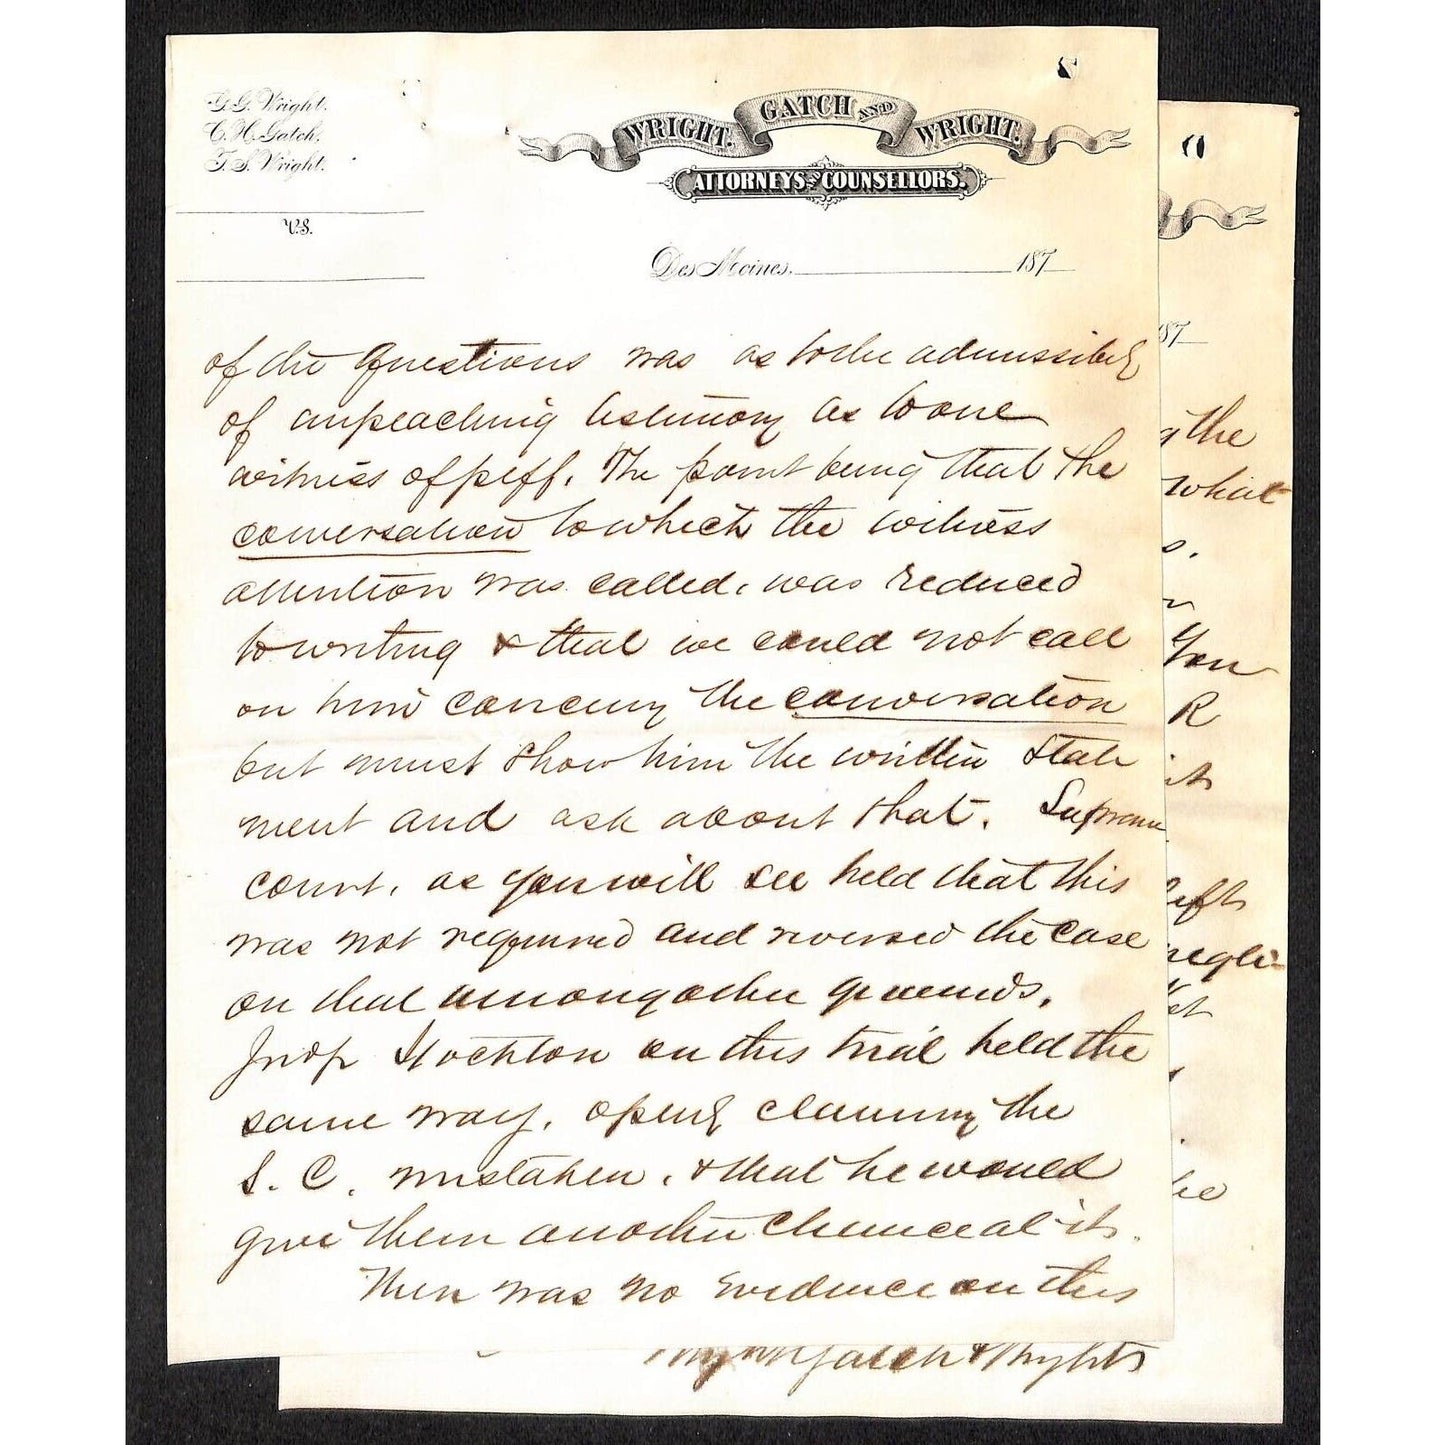 G. G. Wright.
C. H. Gatch.
T. S. Wright.
WRIGHT. GATCH AND WRIGHT.
ATTORNEYS AND COUNSELLORS.
V.S.
Des Moines. 187
of the questions was as to the admissibly
of impeaching testimony as to one
witness of ptff. The point being that the
conversation to which the witness
attention was called, was reduced
to writing & that we could not call
on him concerning the conversation
but must show him the written state
ment and ask about that. Supreme
court, as you will see held that this
was not required and reversed the case
on that among other grounds.
Stockton on this trial held the
same way, openly claiming the
S. C. mistaken, & that he would
give them another chance at it.
There was no evidence on this
187
the
what
s.
You
R
it
left
negli-
he
Gatch & Wright